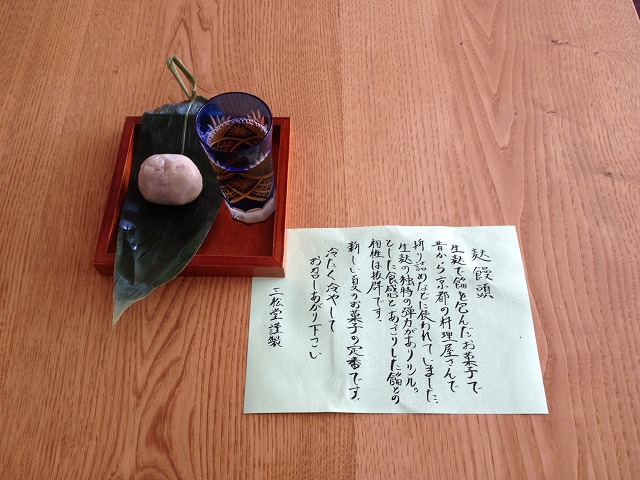 麩饅頭
生麩で餡を包んだお菓子で
昔から京都の料理屋さんで
折り詰めなどに使われていました。
生麩の独特の弾力がありツルッ
とした食感とあっさりした餡との
相性は抜群です。
新しい夏のお菓子の定番です。
冷たく冷やして
お召しあがり下さい
三松堂謹製